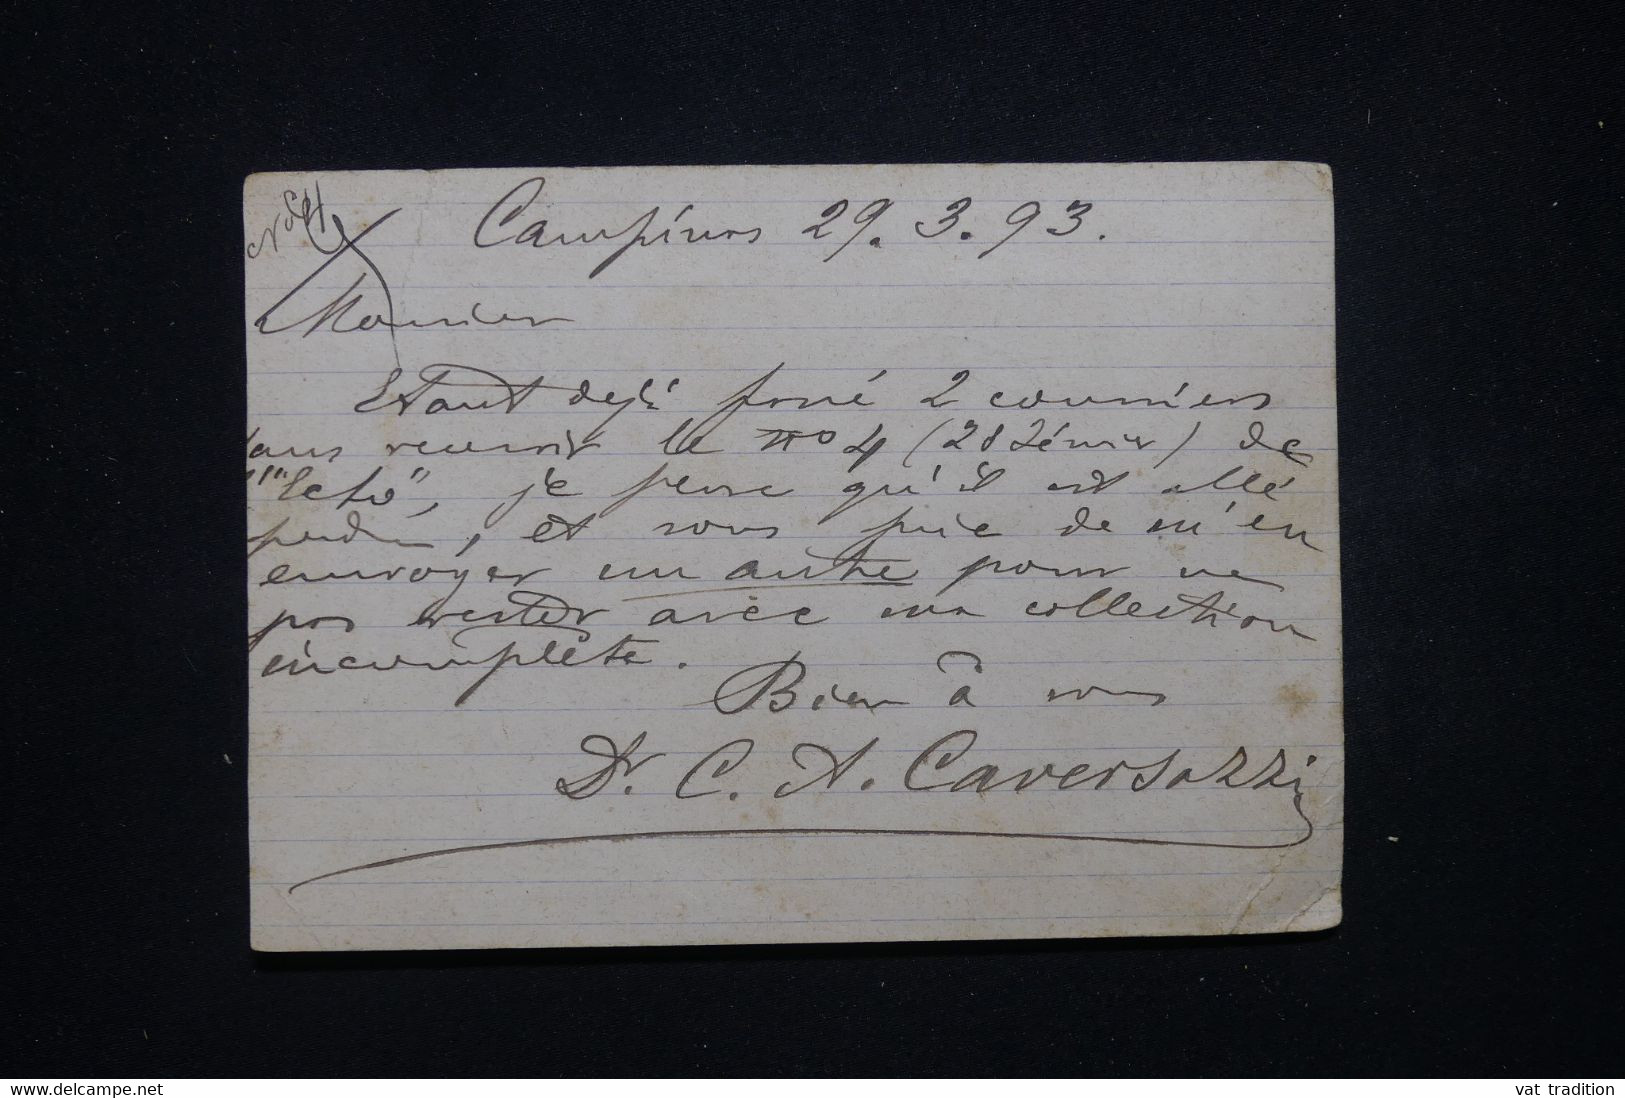 Campinas 29.3.93.
Monsieur
Etant dejà passé 2 courriers
sans recevoir le no 4 (28 Février) de
je pense qu'il est allé
perdu, et vous prie de m'en
envoyer un autre pour ne
pas rester avec ma collection
incomplète.
Bien à vous
Dr. C. A. Caversazzi
www.delcampe.net
vat tradition